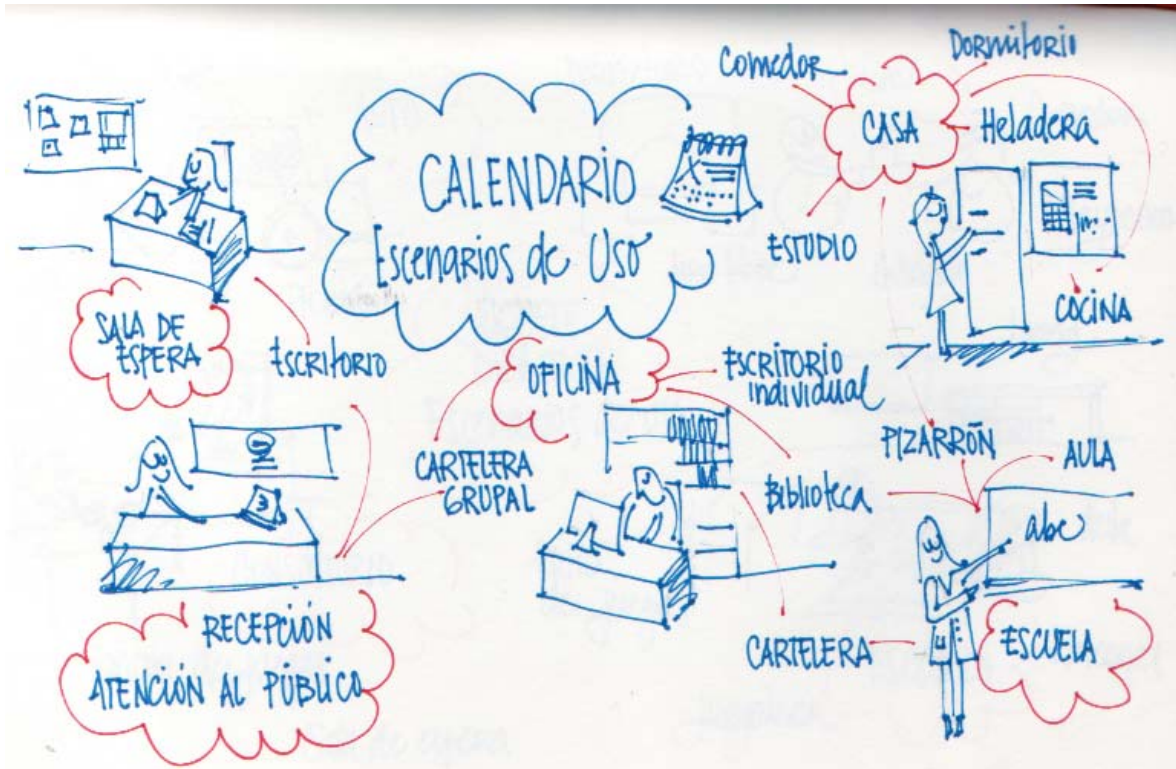 CALENDARIO
Escenarios de Uso
Comedor
DORMITORIO
CASA
Heladera
ESTUDIO
COCINA
SALA DE
ESPERA
ESCRITORIO
OFICINA
ESCRITORIO
individual
CARTELERA
GRUPAL
Biblioteca
PIZARRÓN
AULA
abc
RECEPCIÓN
ATENCIÓN AL PÚBLICO
CARTELERA
ESCUELA